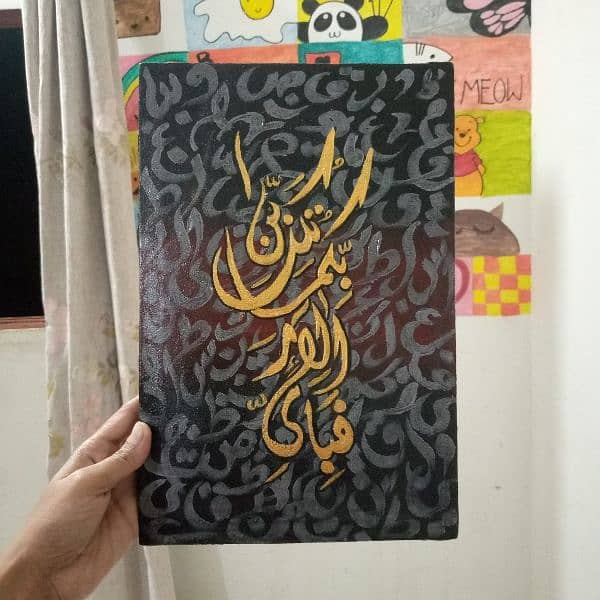 MEOW
فَبِأَيِّ آلَاءِ رَبِّكُمَا تُكَذِّبَانِ